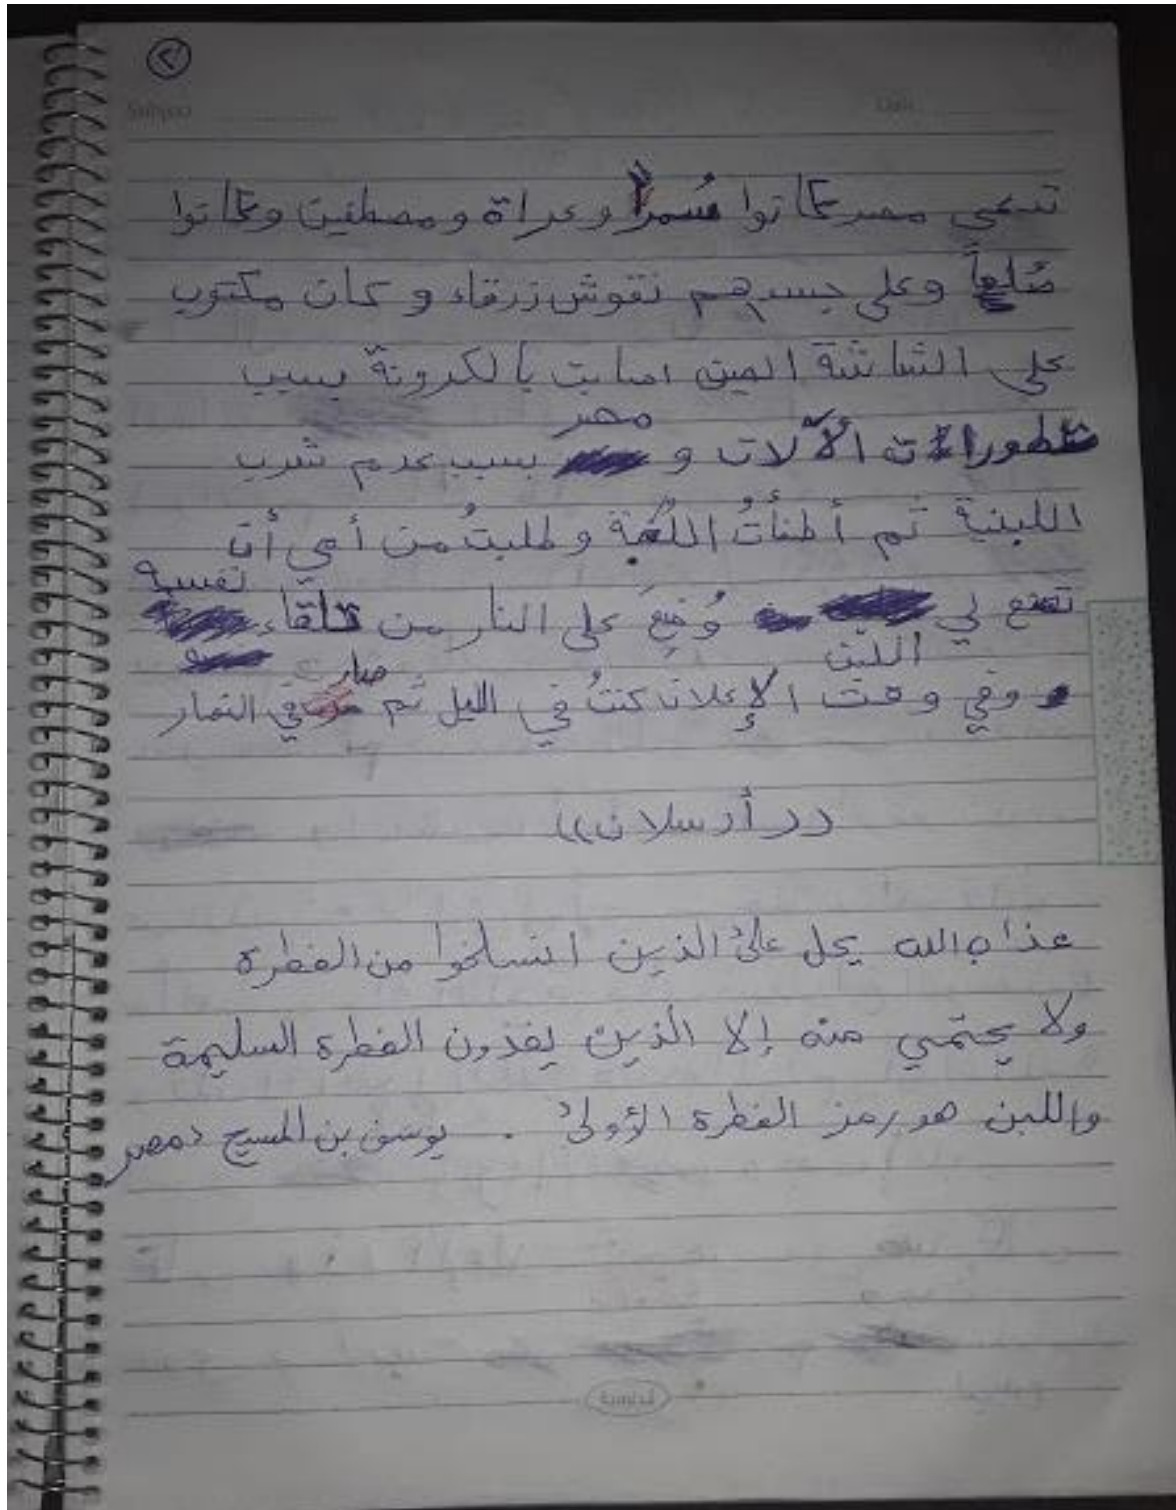 ٢
Subject
Date
تدعى مصر كانوا سُمراً وعراة ومصطفين وكانوا
صُلعاً وعلى جسدهم نقوش زرقاء وكان مكتوب
على الشاشة الصين اصابت بالكرونة بسبب
تطوراءت الألات و مصر بسبب عدم شرب
اللبنية ثم أطفأتُ اللُعبة وطلبتُ من أمي أن
تصنع لي اللبن وُضِعَ على النار من تلقاء نفسه
وفي وقت الإعلان كنتُ في الليل ثم صار في النهار
((أرسلان))
عذاب الله يحل على الذين انسلخوا من الفطرة
ولا يحتمي منه إلا الذين يفدون الفطرة السليمة
واللبن هو رمز الفطرة الأولى . يوسف بن المسيح مصر